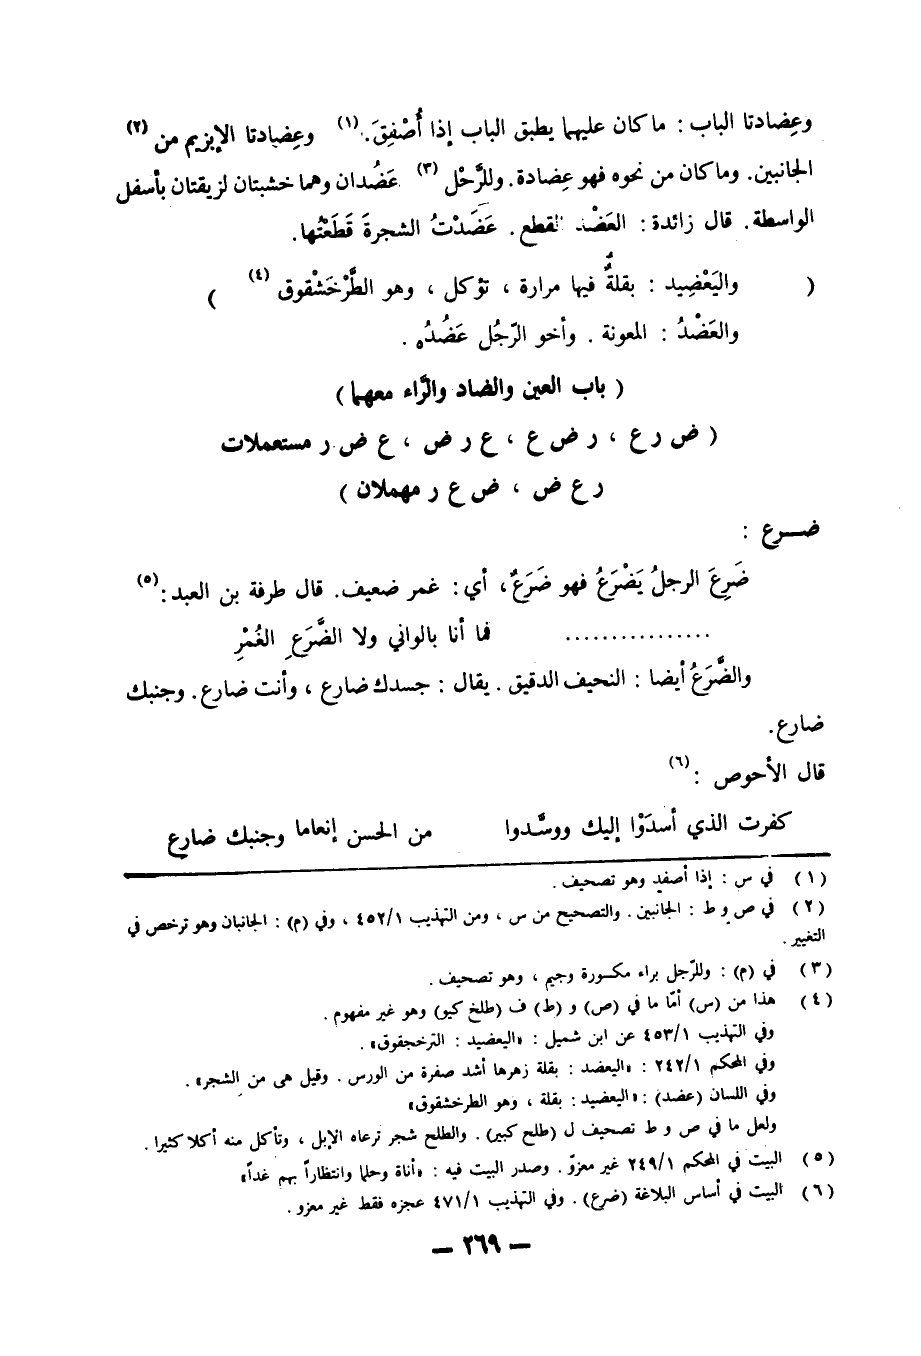 وعِضادتا الباب : ما كان عليهما يطبق الباب إذا أُصْفِقَ. (١) وعِضادتا الإبزيم من (٢)
الجانبين. وما كان من نحوه فهو عِضادة. وللرَّحْل (٣) عَضُدان وهما خشبتان لزيقتان بأسفل
الواسطة. قال زائدة : العَضْد القطع. عَضَدْتُ الشجرةَ قَطَعْتُها.
( واليَعْضِيد : بقلةٌ فيها مرارة ، تؤكل ، وهو الطَّرْخَشْقوق (٤) )
والعَضْدُ : المعونة . وأخو الرّجُل عَضُدُه .
( باب العين والضاد والرَّاء معهما )
( ض ر ع ، ر ض ع ، ع ر ض ، ع ض ر مستعملات
ر ع ض ، ض ع ر مهملان )
ضـرع :
ضَرِعَ الرجلُ يَضْرَعُ فهو ضَرَعٌ، أي : غمر ضعيف. قال طرفة بن العبد : (٥)
................ فما أنا بالواني ولا الضَّرَعِ الغُمْرِ
والضَّرَعُ أيضا : النحيف الدقيق . يقال : جسدك ضارع ، وأنت ضارع . وجنبك
ضارع.
قال الأحوص : (٦)
كفرت الذي أسدَوْا إليك ووسَّدوا من الحسن إنعاما وجنبك ضارع
(١) في س : إذا أصفد وهو تصحيف .
(٢) في ص و ط : الجانبين . والتصحيح من س ، ومن التهذيب ٤٥٢/١ ، وفي (م) : الجانبان وهو ترخص في
التغيير .
(٣) في (م) : وللرّجل براء مكسورة وجيم ، وهو تصحيف .
(٤) هذا من (س) أمّا ما في (ص) و (ط) ف (طلخ كيو) وهو غير مفهوم .
وفي التهذيب ٤٥٣/١ عن ابن شميل : «اليعضيد : الترخجقوق» .
وفي المحكم ٢٤٢/١ : «اليعضد : بقلة زهرها أشد صفرة من الورس . وقيل هى من الشجر» .
وفي اللسان (عضد) : «اليعضيد : بقلة ، وهو الطرخشقوق»
ولعل ما في ص و ط تصحيف ل (طلح كبير) . والطلح شجر ترعاه الإبل ، وتأكل منه أكلا كثيرا .
(٥) البيت في المحكم ٢٤٩/١ غير معزوّ . وصدر البيت فيه : «أناة وحلما وانتظاراً بهم غداً»
(٦) البيت في أساس البلاغة (ضرع) . وفي التهذيب ٤٧١/١ عجزه فقط غير معزو .
— ٢٦٩ —